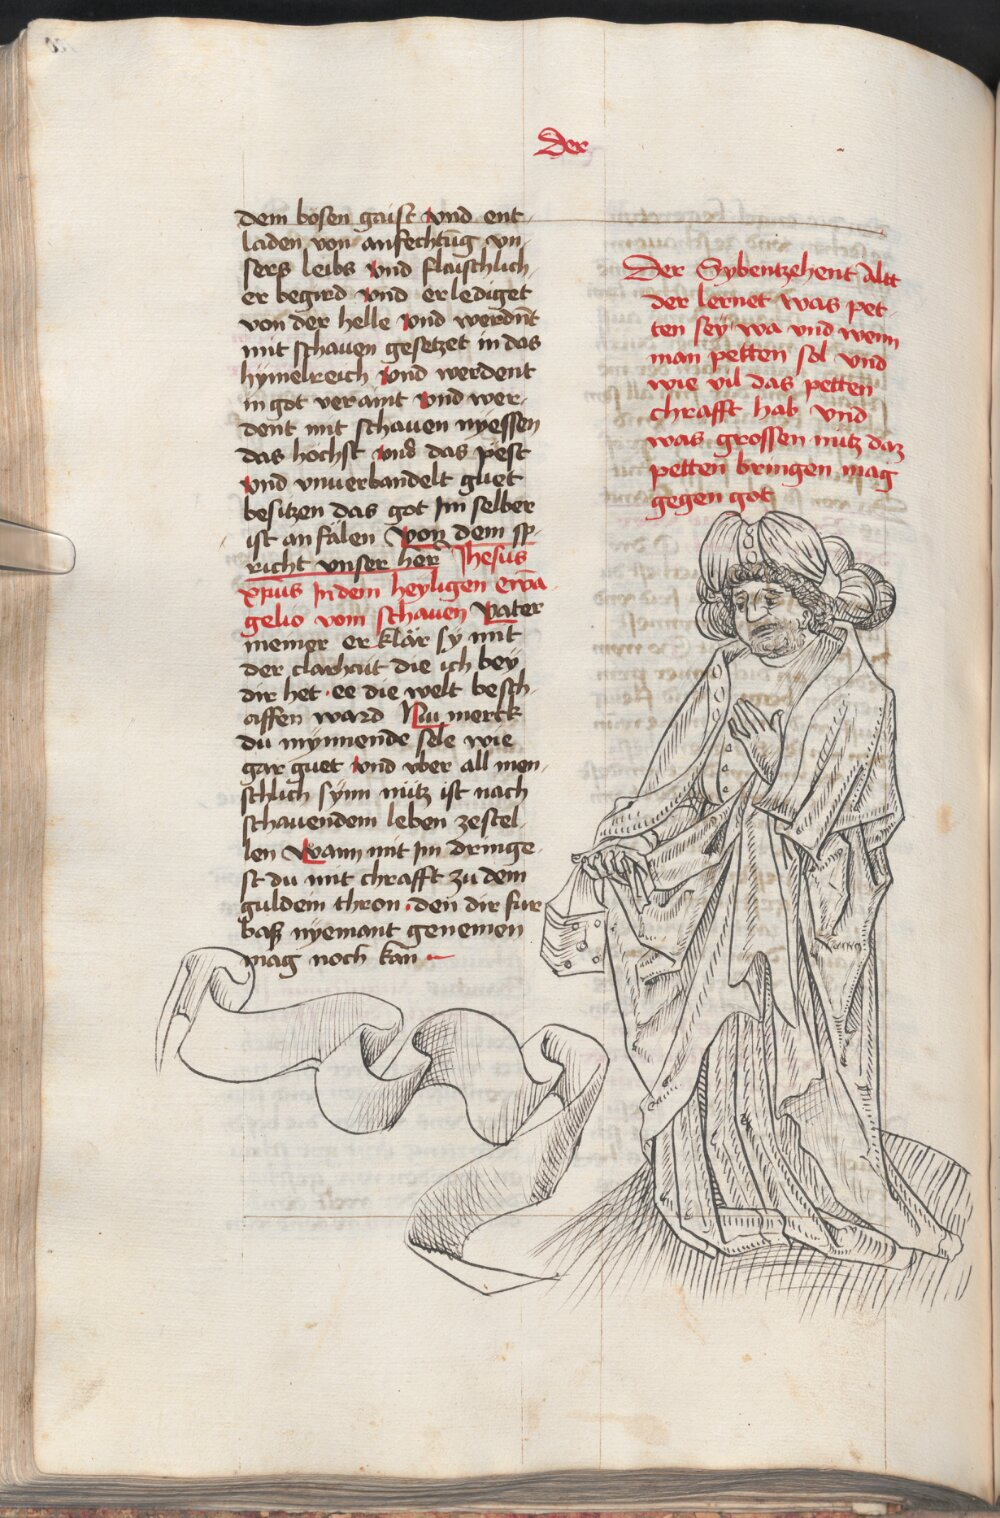 Der
dem bosen gaist vnd ent-
laden von anfechtūg vn-
sers leibs vnd flaischlich-
er begird vnd erlediget
von der helle vnd werdn̄t
mit schauen gesetzet in das
hymelreich vnd werdent
in got veraint vnd wer-
dent mit schauen nyessen
das hochst vnd das pest
vnd vnuerbandelt guet
besitzen das got im selber
ist an falen Von dem sp-
richt vnser her Jhesus
xpūs In dem heyligen ewā
gelio vom schauen Vater
meiner erklär sy mit
der clarhait die ich bey
dir het · ee die welt besch-
affen ward Nu merck
du mynnende sele wie
gar guet vnd vber all men-
schlich synn nütz ist nach
schauendem leben zestel-
len Wann mit im dringe-
st du mit chrafft zu dem
guldem thron · den dir fur
bas nyemant genemen
mag noch kan
Der Sybentzehent Alt
der lernet was pet-
ten sey wa vnd wenn
man petten sol vnd
wie vil das petten
chrafft hab vnd
was grossen nutz daz
petten bringen mag
gegen got